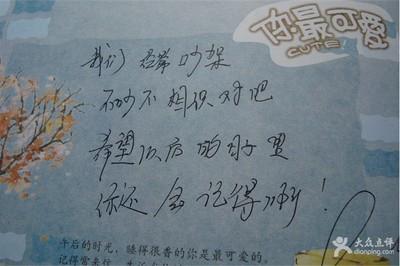 你最可爱
CUTE!
我们经常吵架
不吵不相识对吧
希望以后的日子里
你还会记得啊！
午后的时光，睡得很香的你是最可爱的。
记得常来信
大众点评
dianping.com